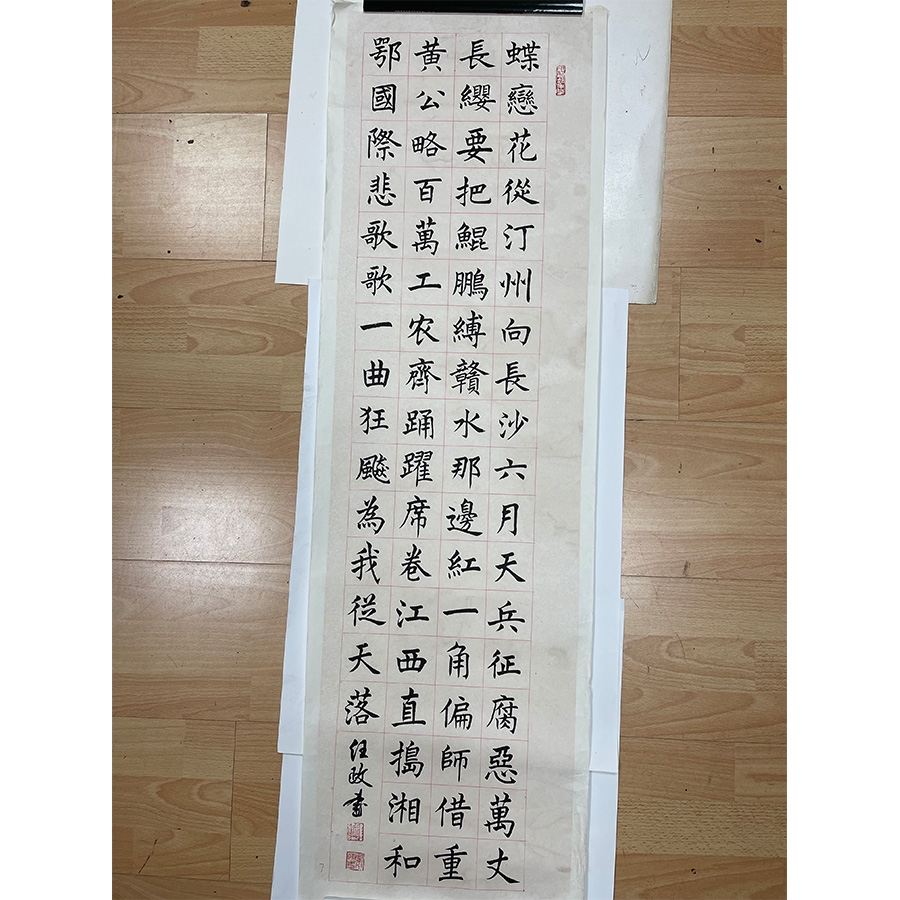 蝶戀花從汀州向長沙六月天兵征腐惡萬丈
長纓要把鯤鵬縛贛水那邊紅一角偏師借重
黃公略百萬工农齊踊躍席卷江西直搗湘和
鄂國際悲歌歌一曲狂飈為我從天落
任政書